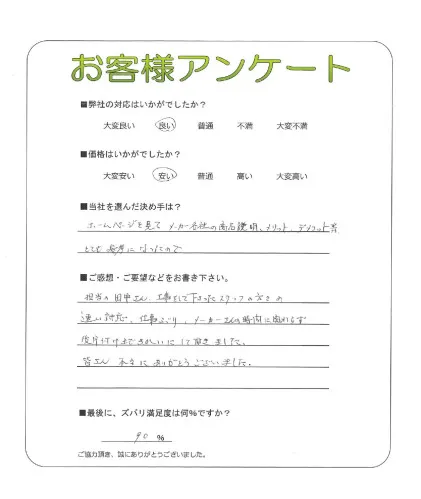 お客様アンケート
■弊社の対応はいかがでしたか?
大変良い 良い 普通 不満 大変不満
■価格はいかがでしたか?
大変安い 安い 普通 高い 大変高い
■当社を選んだ決め手は?
ホームページを見て メーカー各社の商品説明、メリット、デメリット等
とても参考になったので
■ご感想・ご要望などをお書き下さい。
担当の田中さん、工事をして下さったスタッフの方々の
速い対応、仕事ぶり、メーカーさんの時間に
後片付けまできれいにして頂きまして、
皆さん 本当にありがとうございました。
■最後に、ズバリ満足度は何%ですか?
90 %
ご協力頂き、誠にありがとうございました。